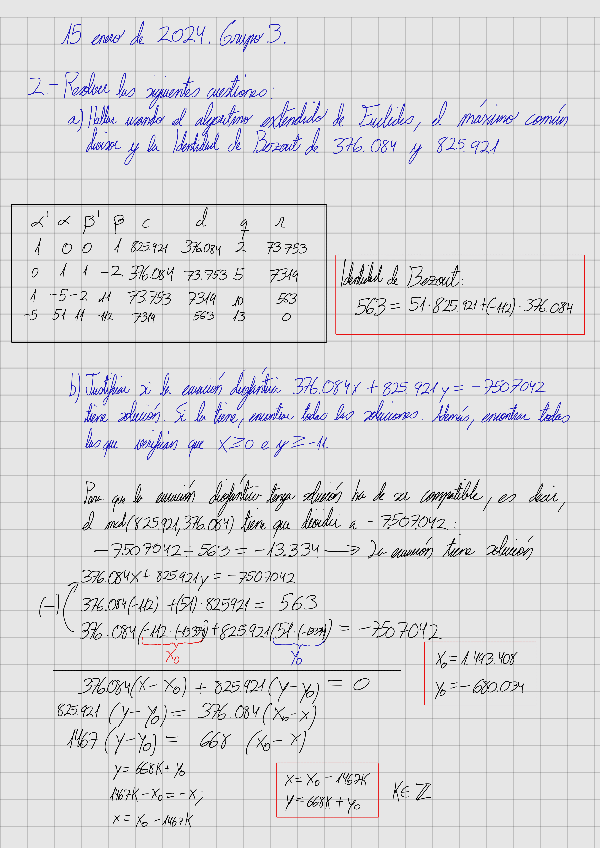 15 enero de 2024. Grupo 3.
2- Resolver las siguientes cuestiones:
a) Hallar usando el algoritmo extendido de Euclides, el máximo común
divisor y la Identidad de Bezout de 376.084 y 825.921
α' α β' β c d q r
1 0 0 1 825.921 376.084 2 73.753
0 1 1 -2 376.084 73.753 5 7319
1 -5 -2 11 73.753 7319 10 563
-5 51 11 -112 7319 563 13 0
Identidad de Bezout:
563 = 51·825.921+(-112)·376.084
b) Justificar si la ecuación diofántica 376.084x + 825.921y = -7507042
tiene solución. Si la tiene, encontrar todas las soluciones. Además, encontrar todas
las que verifican que x≥0 e y≥-11.
Para que la ecuación diofántica tenga solución ha de ser compatible, es decir,
el mcd(825921,376.084) tiene que dividir a -7507042:
-7507042÷563 = -13.334 → La ecuación tiene solución
376.084x+825921y = -7507042
(-) 376.084(-112) +(51)·825921 = 563
376.084(-112·(-13334))+825921(51·(-13334)) = -7507042
x₀ y₀
x₀ = 1.493.408
y₀ = -680.034
376.084(x-x₀) + 825.921(y-y₀) = 0
825.921 (y-y₀) = 376.084(x₀-x)
1467(y-y₀) = 668 (x₀-x)
y = 668K+y₀
1467K-x₀ = -x;
x = x₀-1467K
x = x₀ - 1467K
y = 668K + y₀
K∈ℤ